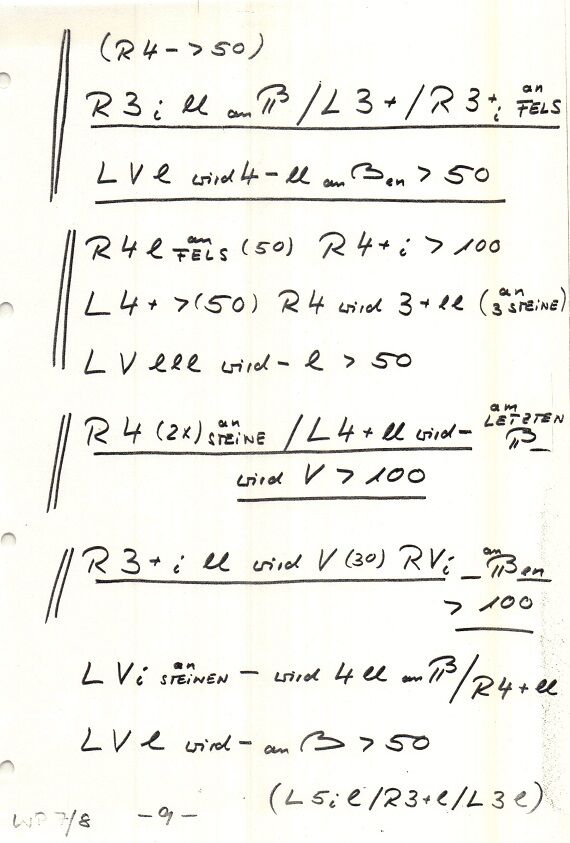 (R 4 -> 50)
R 3 i ll an B / L 3 + / R 3 + i an FELS
L V l wird 4 - ll an B en > 50
R 4 l an FELS (50) R 4 + i > 100
L 4 + > (50) R 4 wird 3 + ll (an 3 STEINE)
L V lll wird - l > 50
R 4 (2x) an STEINE / L 4 + ll wird - am LETZTEN B
wird V > 100
R 3 + i ll wird V (30) R V i an B en
> 100
L V i an STEINEN - wird 4 ll an B / R 4 + ll
L V l wird - an B > 50
(L 5 i l / R 3 + l / L 3 l)
WP 7/8 - 9 -